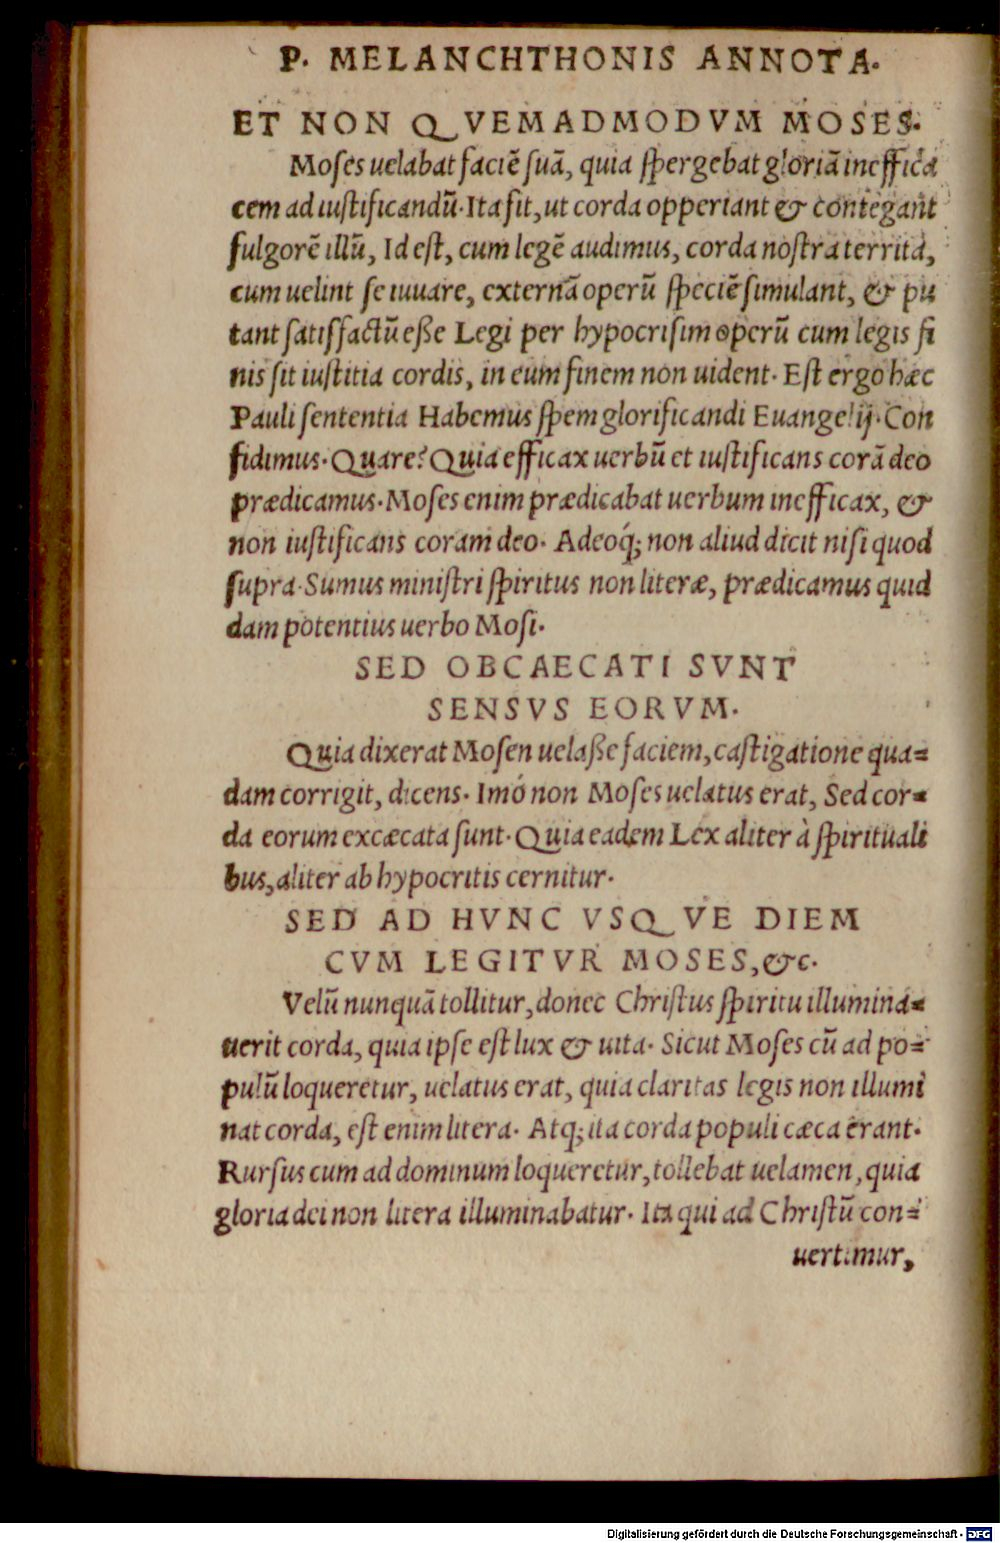 P. MELANCHTHONIS ANNOTA.
ET NON QVEMADMODVM MOSES.
Moſes uelabat faciē ſuā, quia ſpergebat gloriā ineffica
cem ad iuſtificandū. Ita fit, ut corda opperiant & contegant
fulgorē illū, Id eſt, cum legē audimus, corda noſtra territa,
cum uelint ſe iuuare, externā operū ſpeciē ſimulant, & pu
tant ſatiſfactū eſſe Legi per hypocriſim operū cum legis fi
nis ſit iuſtitia cordis, in eum finem non uident. Eſt ergo hæc
Pauli ſententia Habemus ſpem glorificandi Euangelij. Con
fidimus. Quare? Quia efficax uerbū et iuſtificans corā deo
prædicamus. Moſes enim prædicabat uerbum inefficax, &
non iuſtificans coram deo. Adeoq́; non aliud dicit niſi quod
ſupra. Sumus miniſtri ſpiritus non literæ, prædicamus quid
dam potentius uerbo Moſi.
SED OBCAECATI SVNT
SENSVS EORVM.
Quia dixerat Moſen uelaſſe faciem, caſtigatione qua=
dam corrigit, dicens. Imó non Moſes uelatus erat, Sed cor=
da eorum excæcata ſunt. Quia eadem Lex aliter à ſpirituali
bus, aliter ab hypocritis cernitur.
SED AD HVNC VSQVE DIEM
CVM LEGITVR MOSES, &c.
Velū nunquā tollitur, donec Chriſtus ſpiritu illumina=
uerit corda, quia ipſe eſt lux & uita. Sicut Moſes cū ad po=
pulū loqueretur, uelatus erat, quia claritas legis non illumi
nat corda, eſt enim litera. Atq; ita corda populi cæca erant.
Rurſus cum ad dominum loqueretur, tollebat uelamen, quia
gloria dei non litera illuminabatur. Ita qui ad Chriſtū con=
uertimur,
Digitalisierung gefördert durch die Deutsche Forschungsgemeinschaft - DFG